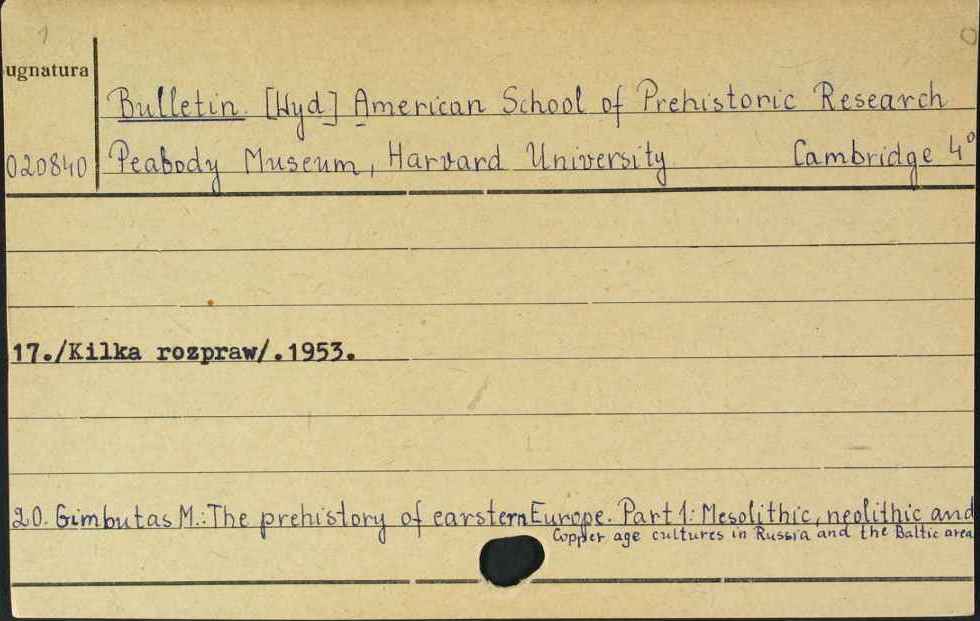 1
ugnatura
Bulletin. [Wyd] American School of Prehistoric Research
020840 Peabody Museum, Harvard University Cambridge 4°
17./Kilka rozpraw/.1953.
20. Gimbutas M.: The prehistory of earstern Europe. Part 1: Mesolithic, neolithic and
Copper age cultures in Russia and the Baltic area